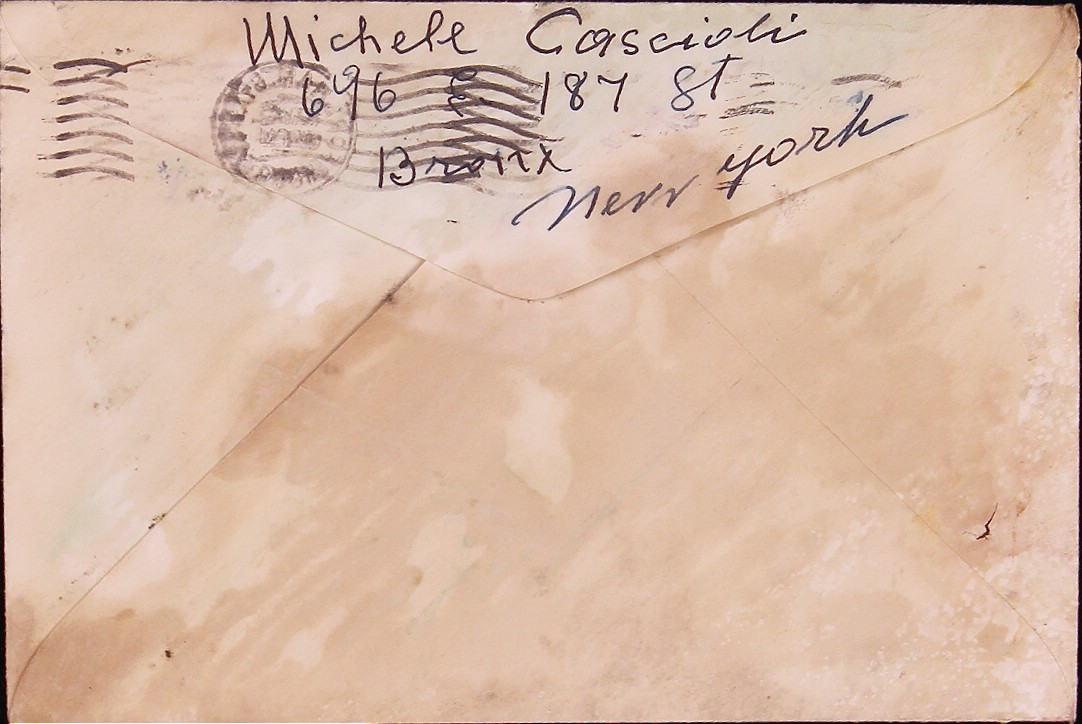 Michele Cascioli
696 E. 187 St
Bronx
New York